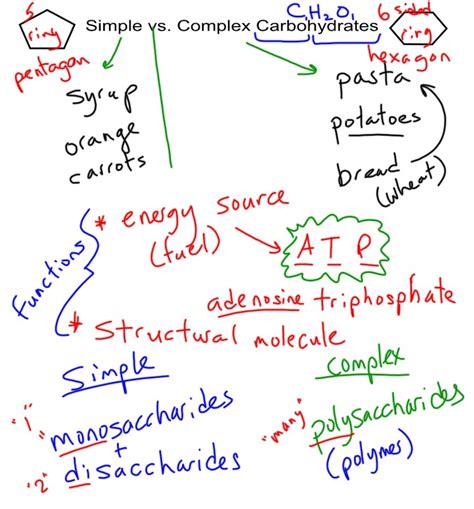 5
ring
pentagon
Simple vs. Complex Carbohydrates
C₁H₂O₁
6 sided
ring
hexagon
syrup
orange
carrots
pasta
potatoes
bread
(wheat)
Functions
* energy source
(fuel)
ATP
adenosine triphosphate
* Structural molecule
Simple
"1" monosaccharides
+
"2" disaccharides
complex
"many" polysaccharides
(polymer)